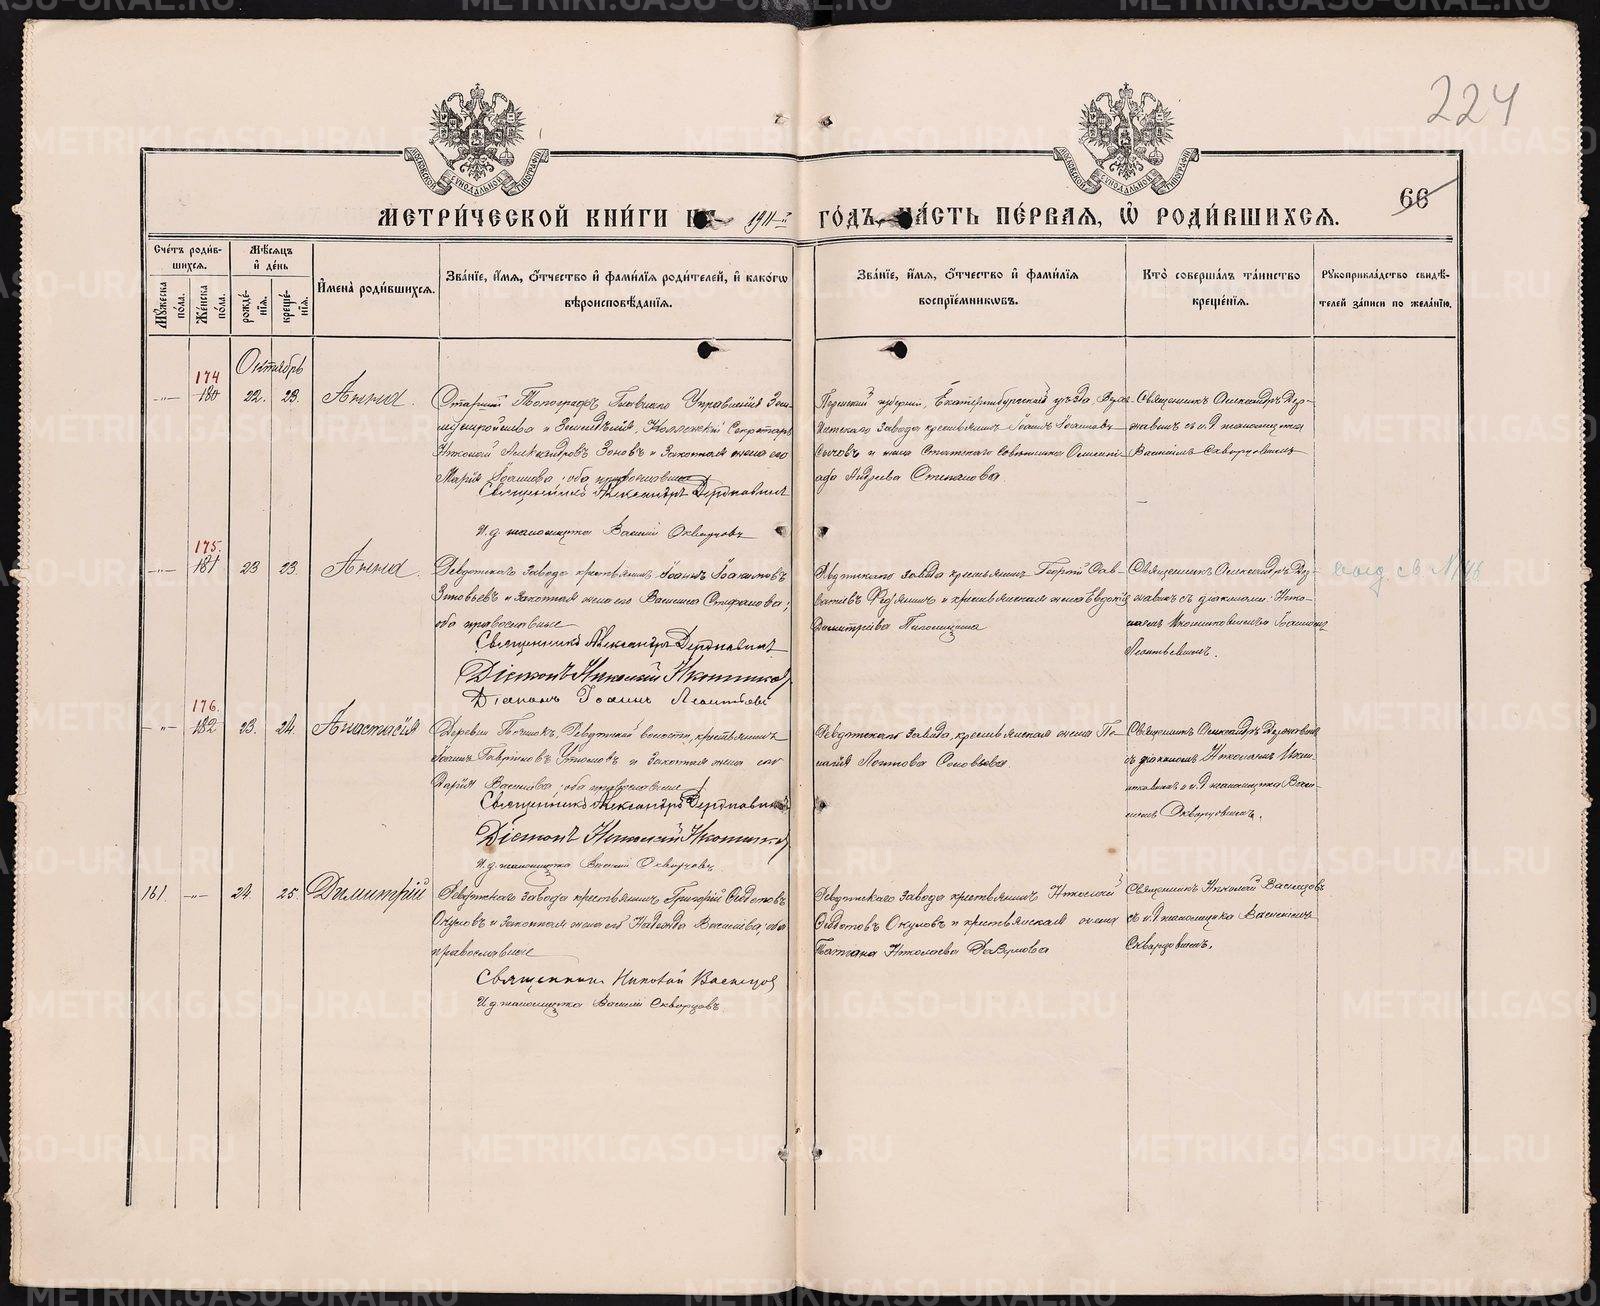 224
66
МЕТРИ́ЧЕСКОЙ КНИ́ГИ НА 1911-й ГО́ДЪ, ЧА́СТЬ ПЕ́РВАЯ, Ѡ РОДИ́ВШИХСЯ.
Сче́тъ роди́в-
шихся.
Му́жеска по́ла.
Же́нска по́ла.
Мѣ́сяцъ
и́ де́нь
рожде́-
нїя.
креще́-
нїя.
И҆мена̀ роди́вшихся.
Зва́нїе, и҆́мя, ѻ҆́тчество и҆ фами́лїѧ роди́телей, и҆ како́гѡ
вѣроисповѣ́данїя.
Зва́нїе, и҆́мя, ѻ҆́тчество и҆ фами́лїѧ
воспрїе́мниковъ.
Кто̀ соверша́лъ та́инство
креще́нїя.
Рꙋкоприкла́дство свидѣ́-
телей за́писи по жела́нїю.
Октябрь
174
180 22. 23. Анна.
Старшій Топографъ Главнаго Управленія Зем-
леустройства и Земледѣлія, Коллежскій Секретарь
Николай Александровъ Зоновъ и законная жена его
Марія Іоаннова; оба православные
Священникъ Александръ Державинъ
И. д. псаломщика Василій Скворцовъ
Пермской губерніи, Екатеринбургскаго уѣзда
завода крестьянинъ Іоаннъ Іоанновъ
Сычовъ и жена Статскаго Совѣтника
Андреева Степанова
Священникъ Александръ Дер-
жавинъ съ и. д. псаломщика
Василіемъ Скворцовымъ
175.
181 23 23. Анна.
Ревдинскаго завода крестьянинъ Іоаннъ Іоакимовъ
Зиновьевъ и законная жена его Васисса Стефанова;
оба православные
Священникъ Александръ Державинъ
Діаконъ Николай
Діаконъ Іоаннъ Леонтьевъ
Ревдинскаго завода крестьянинъ Георгій Сав-
и крестьянская жена Евдокія
Димитріева
Священникъ Александръ Дер-
жавинъ съ діаконами: Нико-
лаемъ и Іоанномъ
Леонтьевымъ.
176.
182 23. 24. Анастасія
Деревни Починокъ, Ревдинской волости, крестьянинъ
Іоаннъ Гавриловъ и законная жена его
Марія Васильева; оба православные
Священникъ Александръ Державинъ
Діаконъ Николай
И. д. псаломщика Василій Скворцовъ
Ревдинскаго завода, крестьянская жена Пе-
лагія Логинова Соловьева.
Священникъ Александръ Державинъ
съ діакономъ Николаемъ
и и. д. псаломщика Васи-
ліемъ Скворцовымъ.
181. 24. 25. Димитрій
Ревдинскаго завода крестьянинъ Григорій Ѳедотовъ
Окуловъ и законная жена его Надежда Васильева; оба
православные
Священникъ Николай Васнецовъ
И. д. псаломщика Василій Скворцовъ
Ревдинскаго завода крестьянинъ Николай
Ѳедотовъ Окуловъ и крестьянская жена
Татіана Николаева
Священникъ Николай Васнецовъ
съ и. д. псаломщика Василіемъ
Скворцовымъ.
METRIKI.GASO-URAL.RU